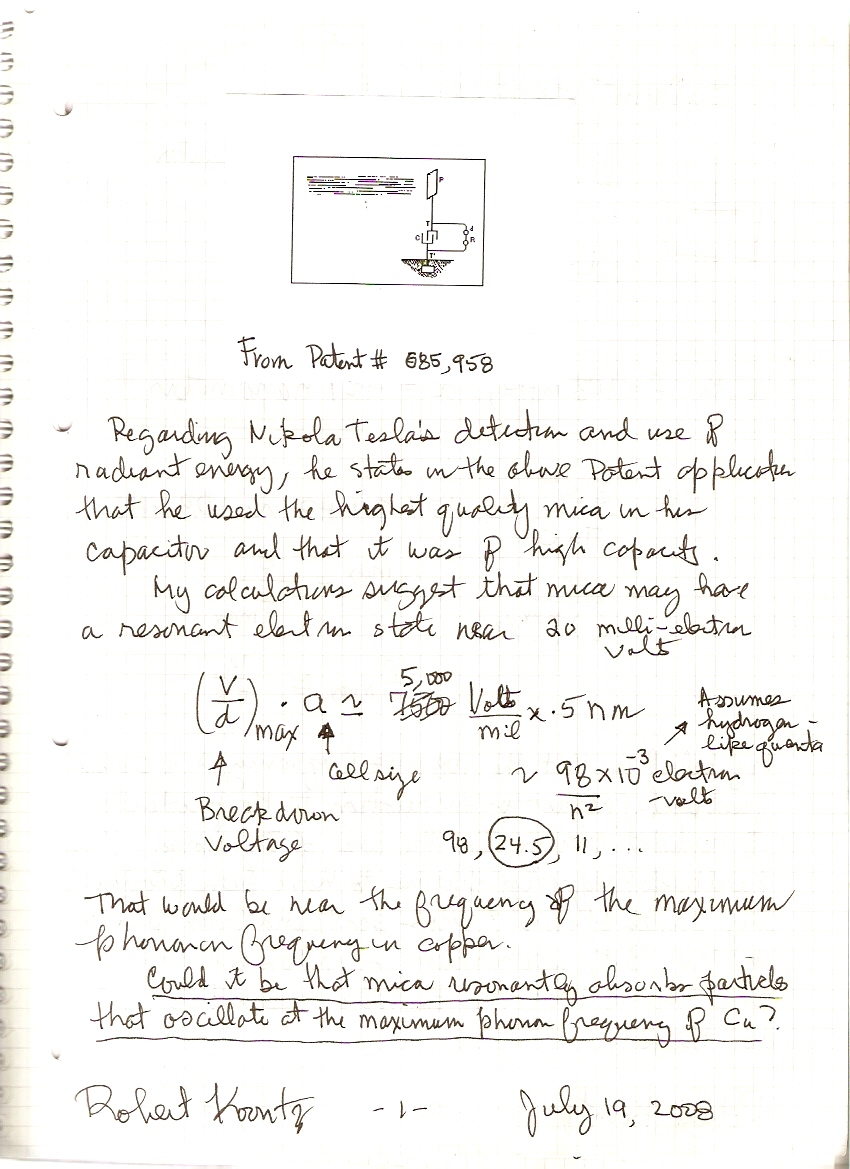 P
T
d
C
R
T'
From Patent # 685,958
Regarding Nikola Tesla's detection and use of
radiant energy, he states in the above Patent application
that he used the highest quality mica in his
capacitor and that it was of high capacity.
My calculations suggest that mica may have
a resonant electron state near 20 milli-electron
Volts
(V/d)max · a ≃ 7500 5,000 Volts/mil × .5 nm
Assumes
hydrogen-
like quanta
cell size
~ 98×10⁻³/n² electron
-volts
Breakdown
Voltage
98, 24.5, 11, ...
That would be near the frequency of the maximum
phonon frequency in copper.
Could it be that mica resonantly absorbs particles
that oscillate at the maximum phonon frequency of Cu?
Robert Koontz -1- July 19, 2008